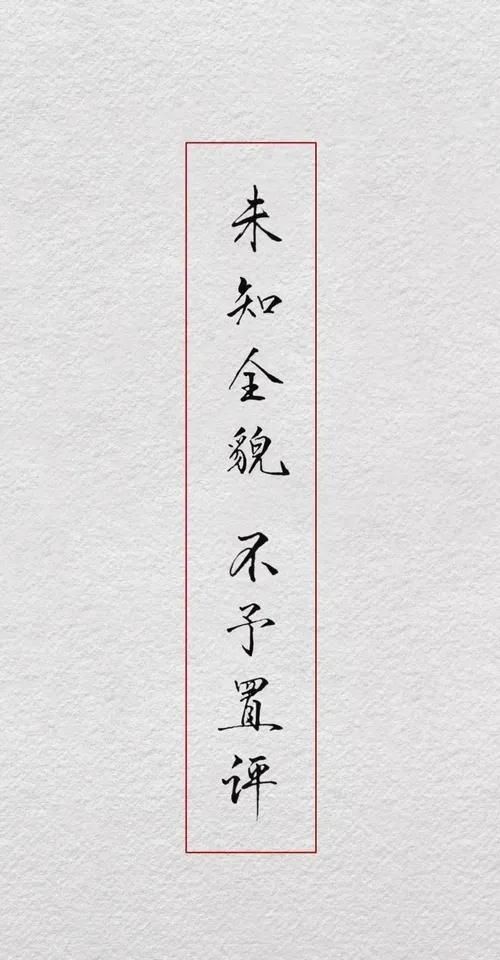 未知全貌 不予置评